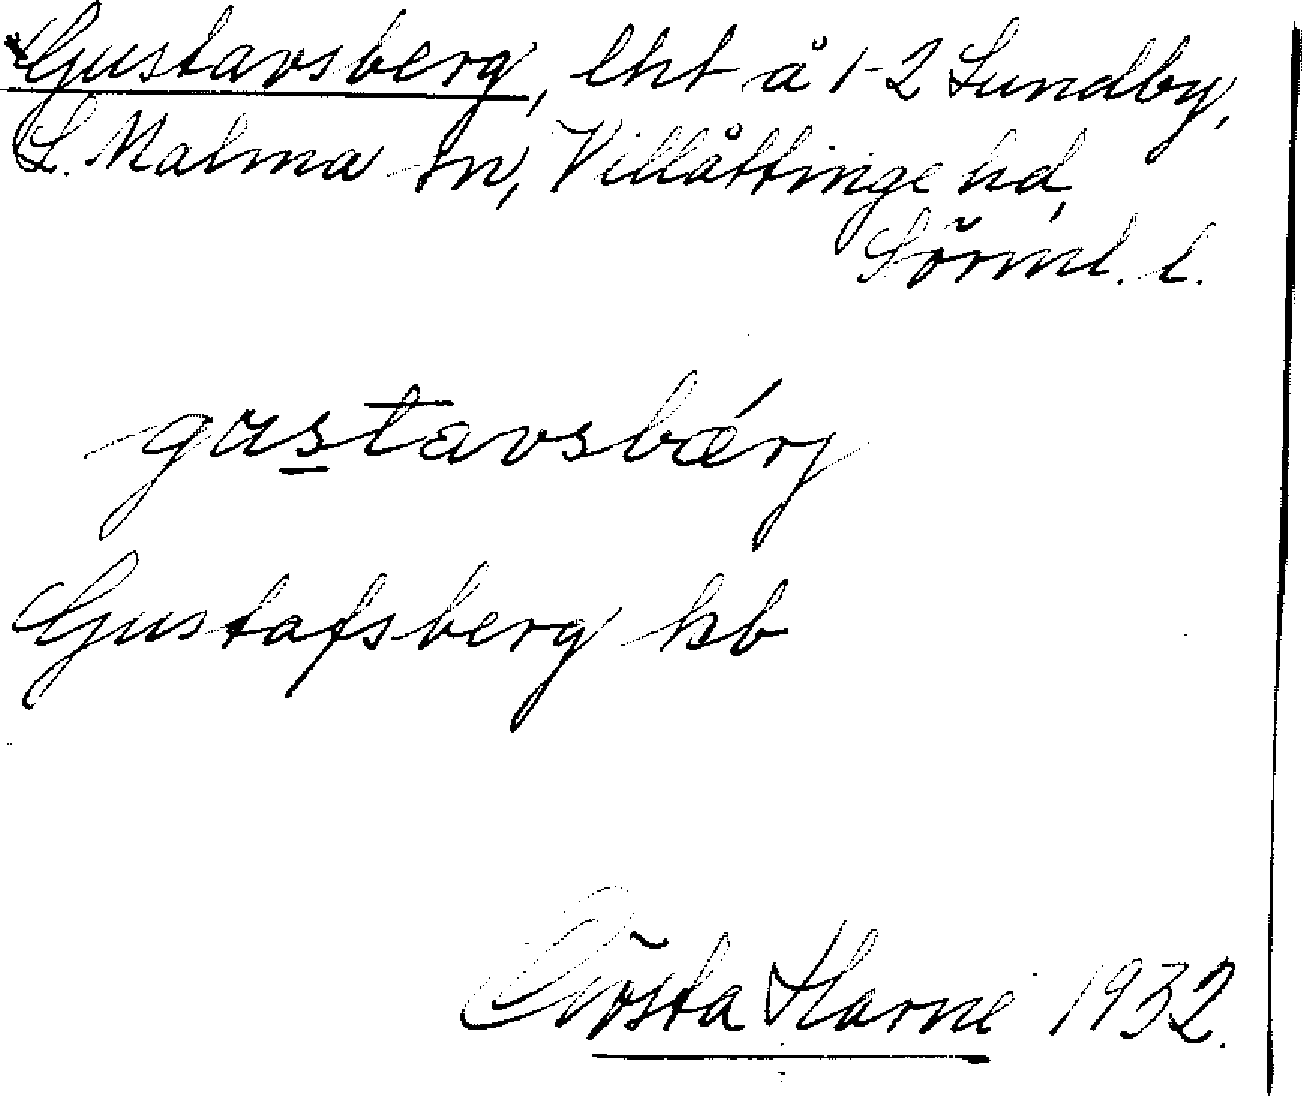 Gustavsberg, lht å 1-2 Lundby,
L. Malma sn, Villåttinge hd,
Sörml. l.
gustavsbærj
Gustafsberg kb
Gösta Harne 1932.